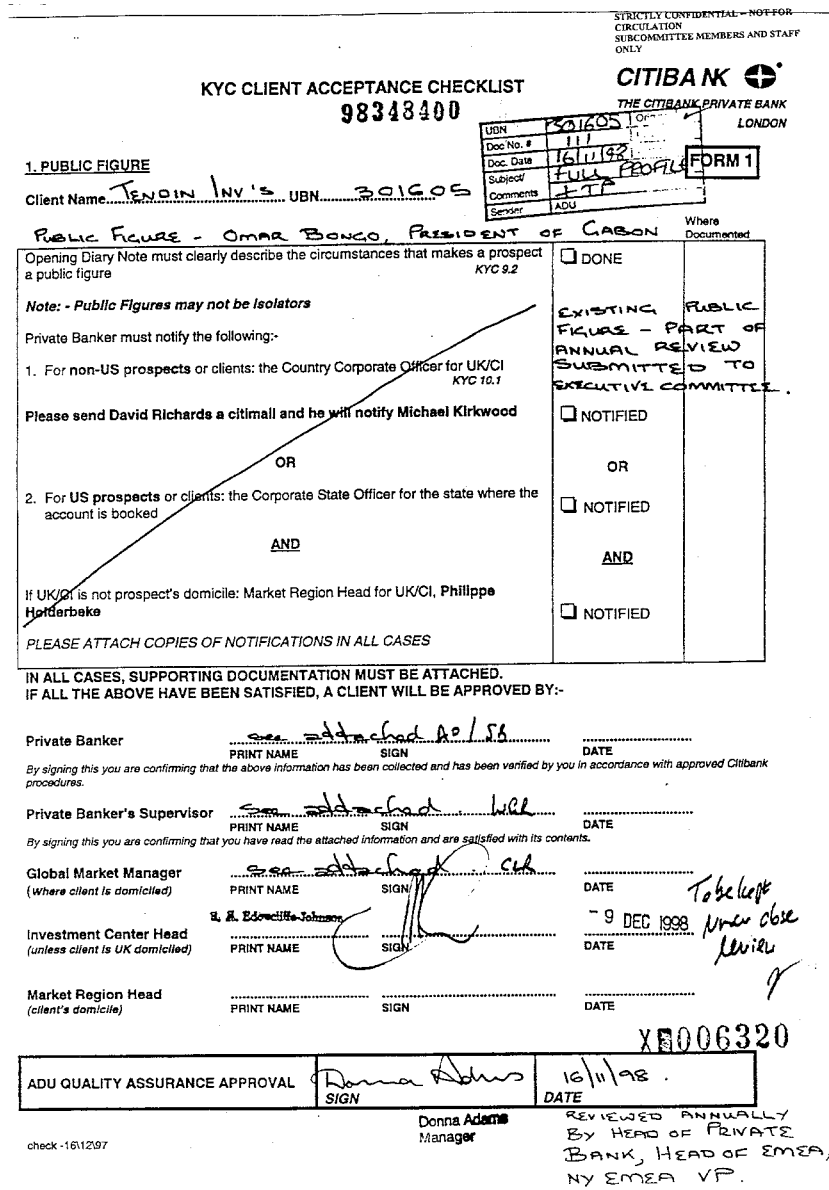 STRICTLY CONFIDENTIAL – NOT FOR
CIRCULATION
SUBCOMMITTEE MEMBERS AND STAFF
ONLY
CITIBANK
THE CITIBANK PRIVATE BANK
LONDON
KYC CLIENT ACCEPTANCE CHECKLIST
98348400
UBN 301605
Doc No. # 111
Doc. Date 16/11/98
Subject/ FULL PROFILE
Comments + IP
Sender ADU
FORM 1
1. PUBLIC FIGURE
Client Name TENDIN INV'S UBN 301605
PUBLIC FIGURE - OMAR BONGO, PRESIDENT OF GABON
Where
Documented
Opening Diary Note must clearly describe the circumstances that makes a prospect
a public figure KYC 9.2
DONE
Note: - Public Figures may not be Isolators
EXISTING PUBLIC
FIGURE - PART OF
ANNUAL REVIEW
SUBMITTED TO
EXECUTIVE COMMITTEE.
Private Banker must notify the following:-
1. For non-US prospects or clients: the Country Corporate Officer for UK/CI
KYC 10.1
Please send David Richards a citimail and he will notify Michael Kirkwood
NOTIFIED
OR
OR
2. For US prospects or clients: the Corporate State Officer for the state where the
account is booked
NOTIFIED
AND
AND
If UK/CI is not prospect's domicile: Market Region Head for UK/CI, Philippe
Holderbeke
NOTIFIED
PLEASE ATTACH COPIES OF NOTIFICATIONS IN ALL CASES
IN ALL CASES, SUPPORTING DOCUMENTATION MUST BE ATTACHED.
IF ALL THE ABOVE HAVE BEEN SATISFIED, A CLIENT WILL BE APPROVED BY:-
Private Banker see attached AO/SB
PRINT NAME SIGN DATE
By signing this you are confirming that the above information has been collected and has been verified by you in accordance with approved Citibank
procedures.
Private Banker's Supervisor See attached.
PRINT NAME SIGN DATE
By signing this you are confirming that you have read the attached information and are satisfied with its contents.
Global Market Manager see attached.
(Where client is domiciled) PRINT NAME SIGN DATE
To be kept
under close
review
Investment Center Head - 9 DEC 1998
(unless client is UK domiciled) PRINT NAME SIGN DATE
Market Region Head
(client's domicile) PRINT NAME SIGN DATE
006320
ADU QUALITY ASSURANCE APPROVAL Donna Adams 16/11/98.
SIGN DATE
Donna Adams
Manager
REVIEWED ANNUALLY
BY HEAD OF PRIVATE
BANK, HEAD OF EMEA,
NY EMEA VP.
check -16\12\97